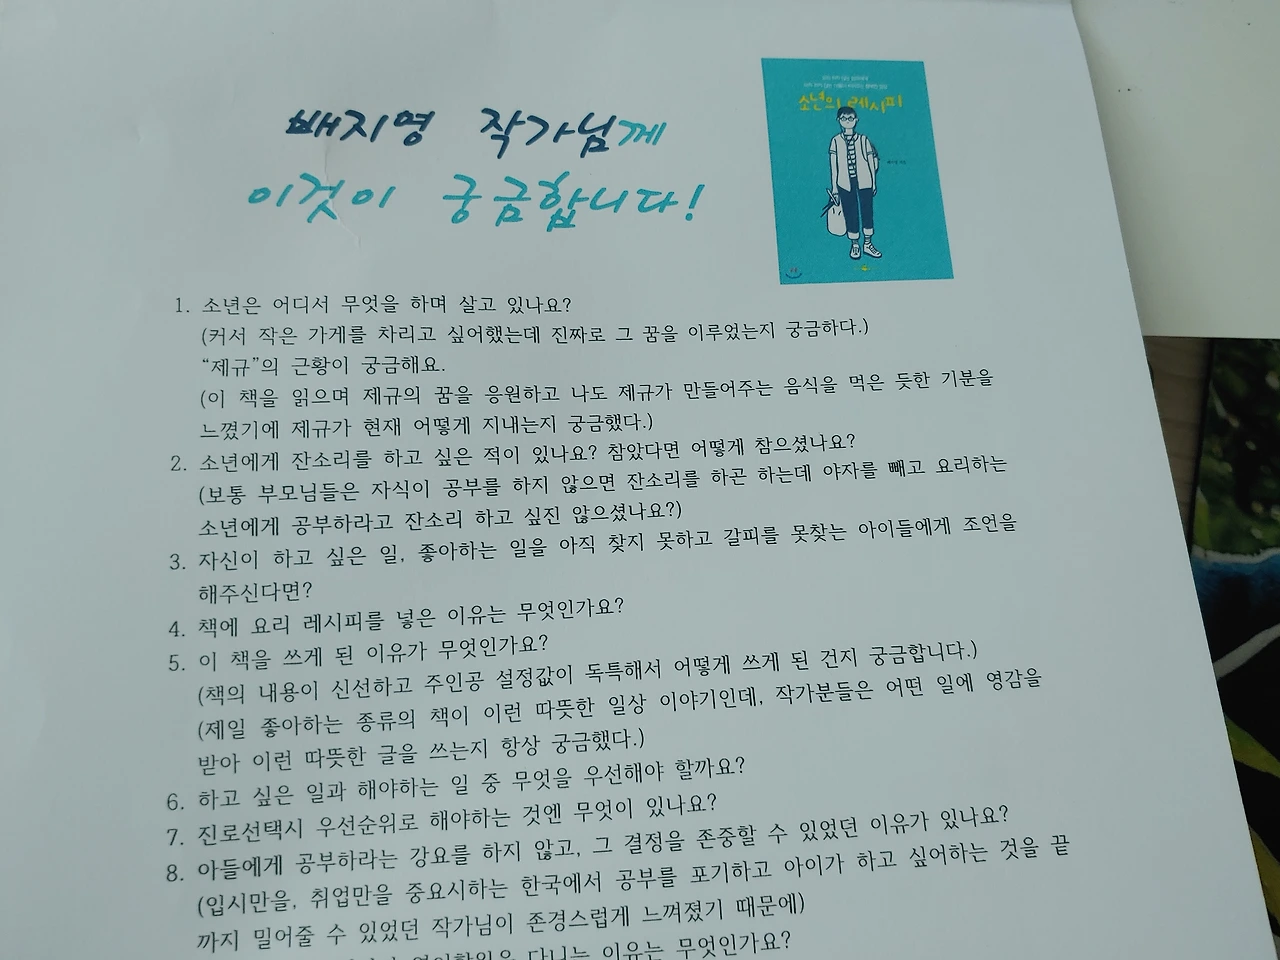 배지영 작가님께
이것이 궁금합니다!
소년의 레시피
1. 소년은 어디서 무엇을 하며 살고 있나요?
(커서 작은 가게를 차리고 싶어했는데 진짜로 그 꿈을 이루었는지 궁금하다.)
“제규”의 근황이 궁금해요.
(이 책을 읽으며 제규의 꿈을 응원하고 나도 제규가 만들어주는 음식을 먹은 듯한 기분을
느꼈기에 제규가 현재 어떻게 지내는지 궁금했다.)
2. 소년에게 잔소리를 하고 싶은 적이 있나요? 참았다면 어떻게 참으셨나요?
(보통 부모님들은 자식이 공부를 하지 않으면 잔소리를 하곤 하는데 야자를 빼고 요리하는
소년에게 공부하라고 잔소리 하고 싶진 않으셨나요?)
3. 자신이 하고 싶은 일, 좋아하는 일을 아직 찾지 못하고 갈피를 못찾는 아이들에게 조언을
해주신다면?
4. 책에 요리 레시피를 넣은 이유는 무엇인가요?
5. 이 책을 쓰게 된 이유가 무엇인가요?
(책의 내용이 신선하고 주인공 설정값이 독특해서 어떻게 쓰게 된 건지 궁금합니다.)
(제일 좋아하는 종류의 책이 이런 따뜻한 일상 이야기인데, 작가분들은 어떤 일에 영감을
받아 이런 따뜻한 글을 쓰는지 항상 궁금했다.)
6. 하고 싶은 일과 해야하는 일 중 무엇을 우선해야 할까요?
7. 진로선택시 우선순위로 해야하는 것엔 무엇이 있나요?
8. 아들에게 공부하라는 강요를 하지 않고, 그 결정을 존중할 수 있었던 이유가 있나요?
(입시만을, 취업만을 중요시하는 한국에서 공부를 포기하고 아이가 하고 싶어하는 것을 끝
까지 밀어줄 수 있었던 작가님이 존경스럽게 느껴졌기 때문에)
다니는 이유는 무엇인가요?